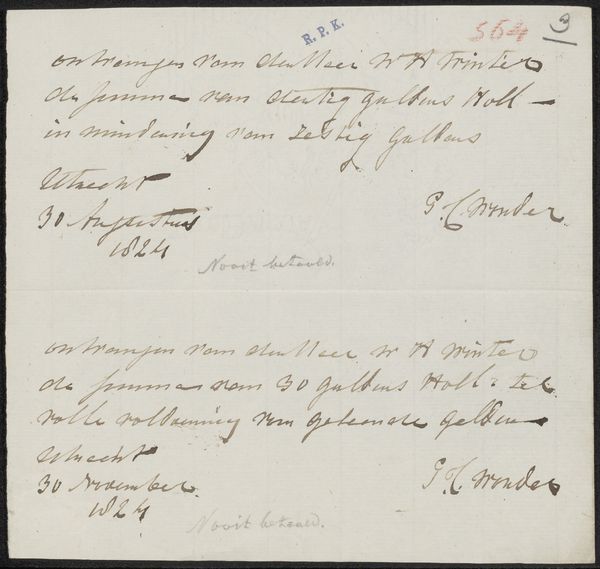 R.P.K.
564
3
ontvangen van den Heer W H Winter
de somma van dertig guldens Holl -
in mindering van zestig guldens
Utrecht
30 Augustus
1824
P. C. Wonder
Nooit betaald.
ontvangen van den Heer W H Winter
de somma van 30 guldens Holl: ter
volle voldoening van geleende gelden
Utrecht
30 November
1824
P. C. Wonder
Nooit betaald.